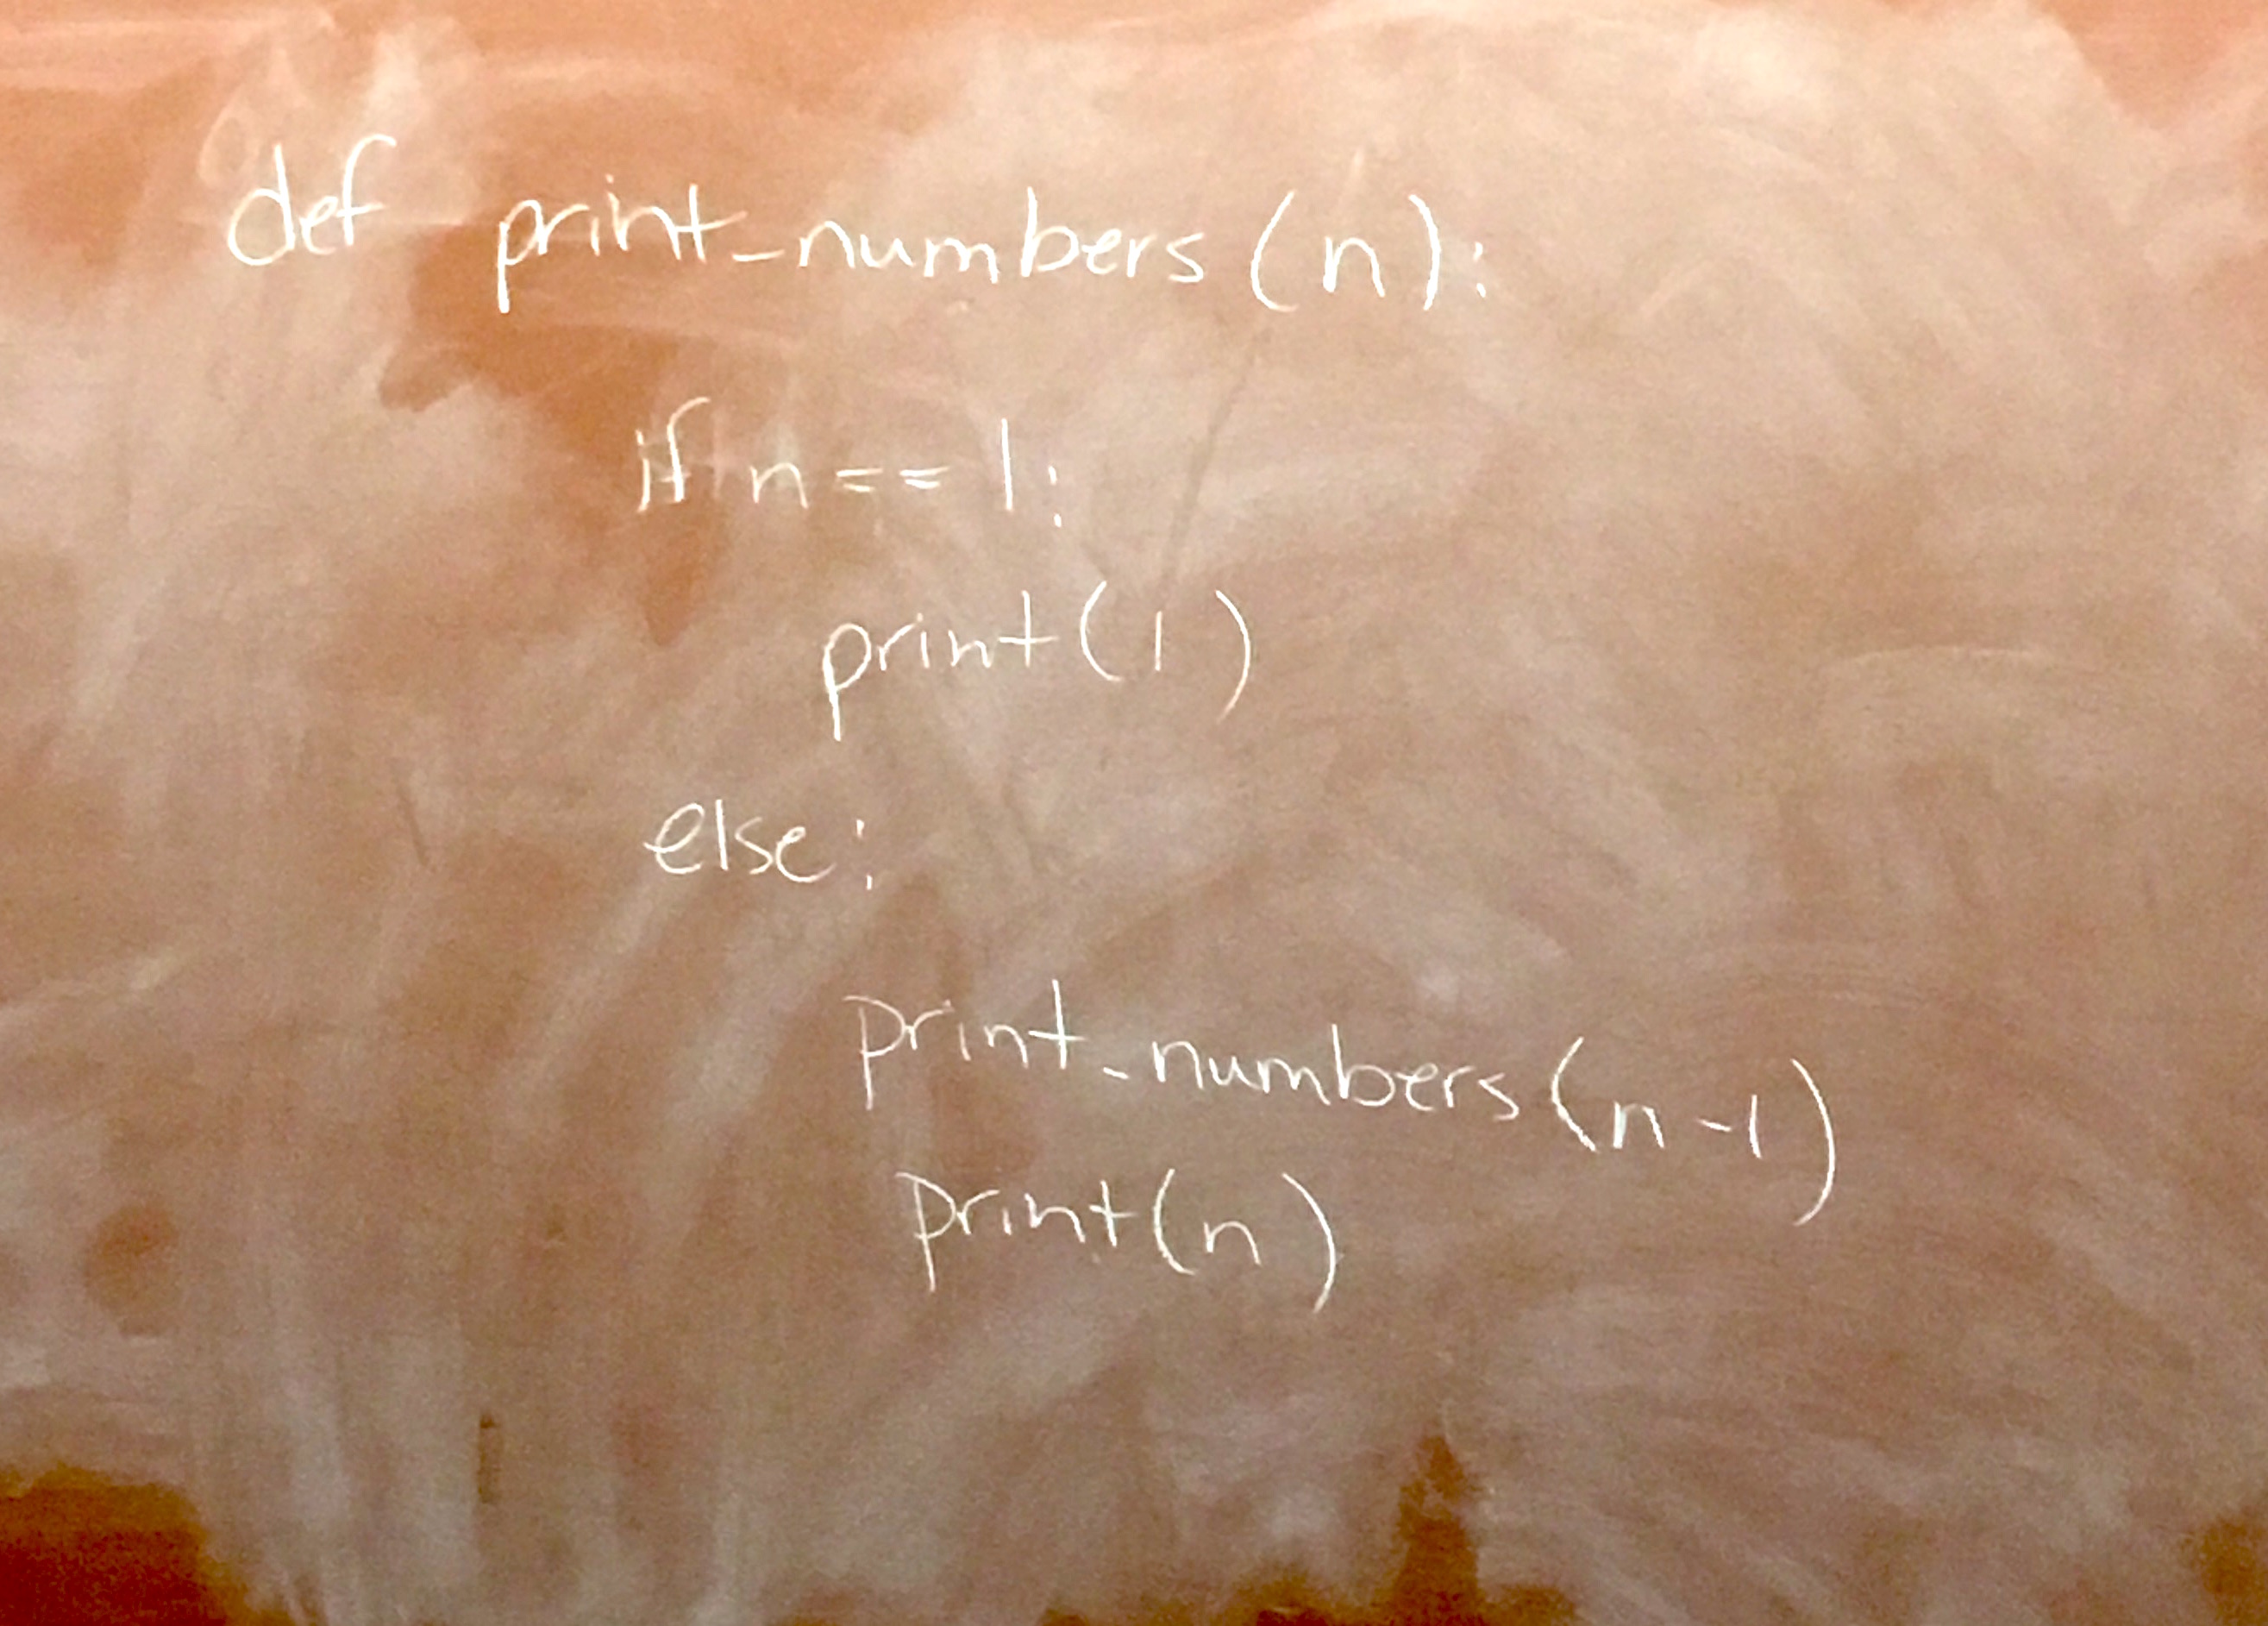 def print_numbers(n):
if n == 1:
print(1)
else:
print_numbers(n-1)
print(n)